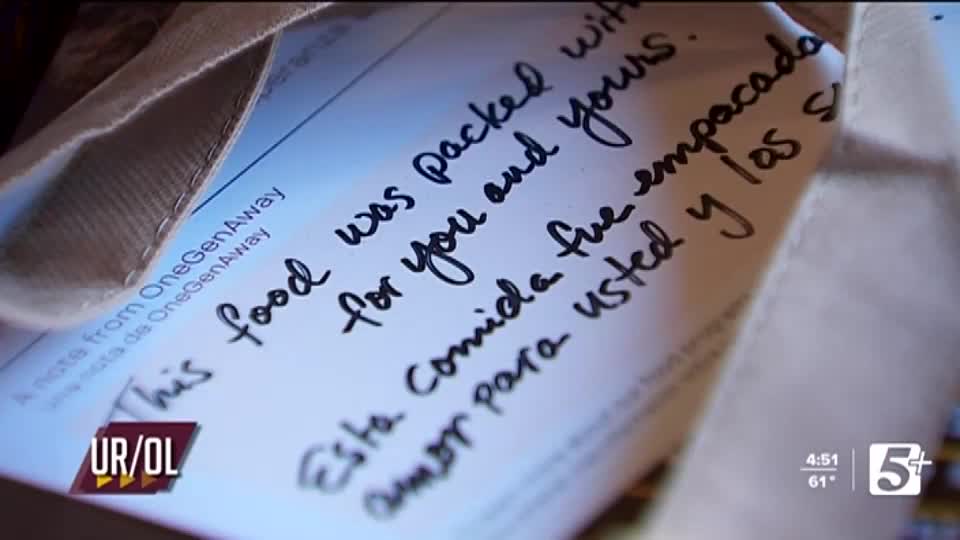 A note from OneGenAway
una nota de OneGenAway
This food was packed with
for you and yours.
Esta Comida fue empacada
amor para usted y los s
UR/OL
4:51
61°
5+